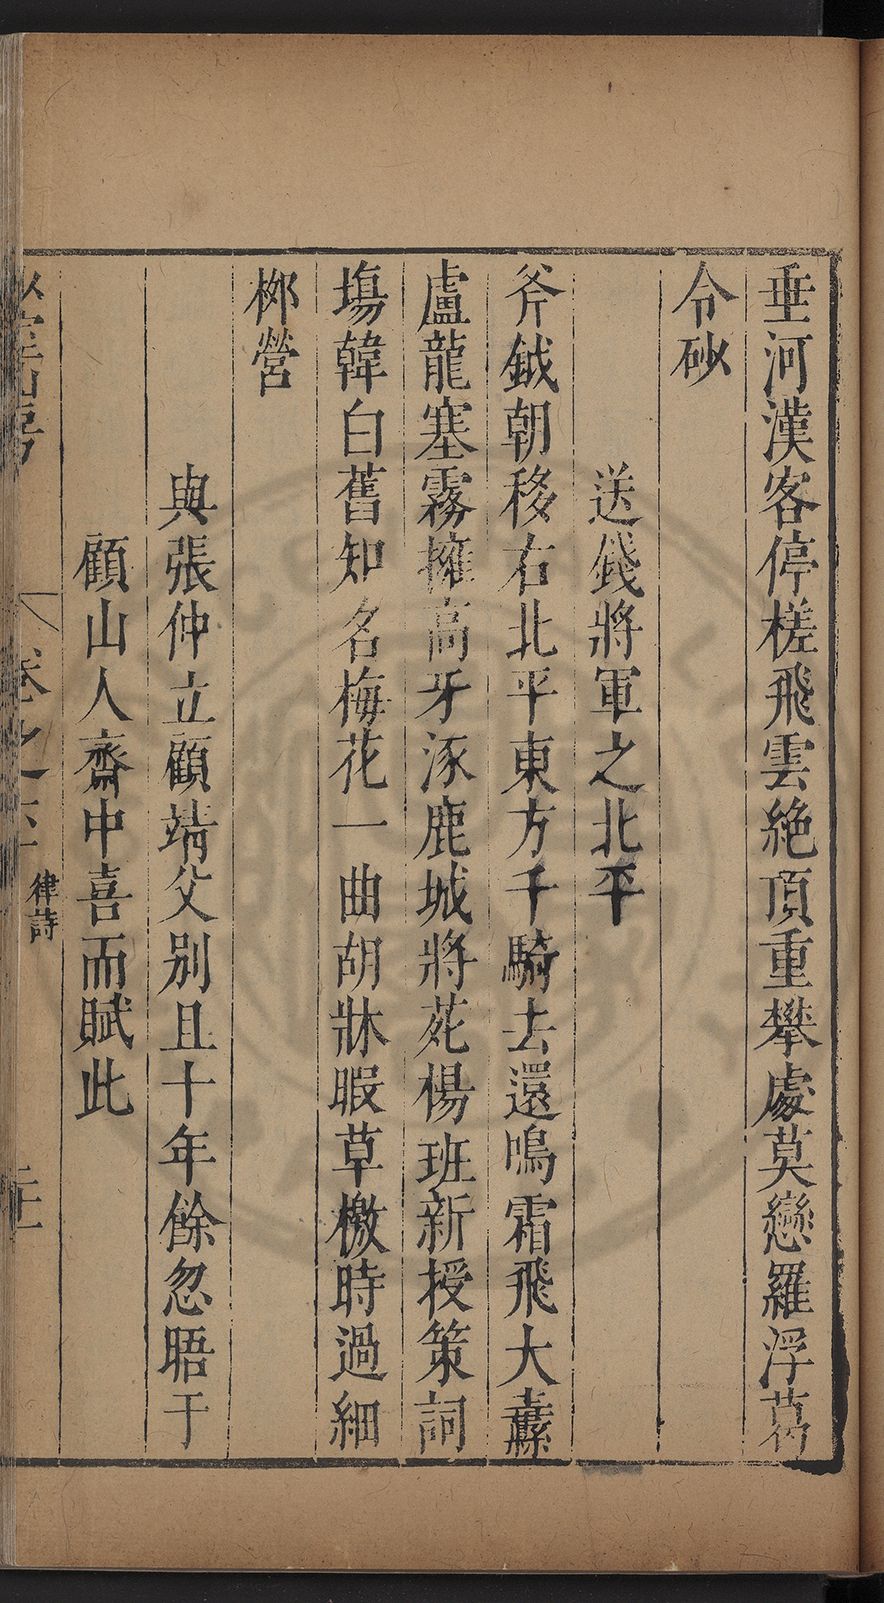 垂河漢客停槎飛雲絶頂重攀處莫戀羅浮葛
令砂
送錢將軍之北平
斧鉞朝移右北平東方千騎去還鳴霜飛大纛
盧龍塞霧擁高牙涿鹿城將苑楊班新授策詞
塲韓白舊知名梅花一曲胡牀暇草檄時過細
桞營
與張仲立顧靖父別且十年餘忽晤于
顧山人齋中喜而賦此
卷之
律詩